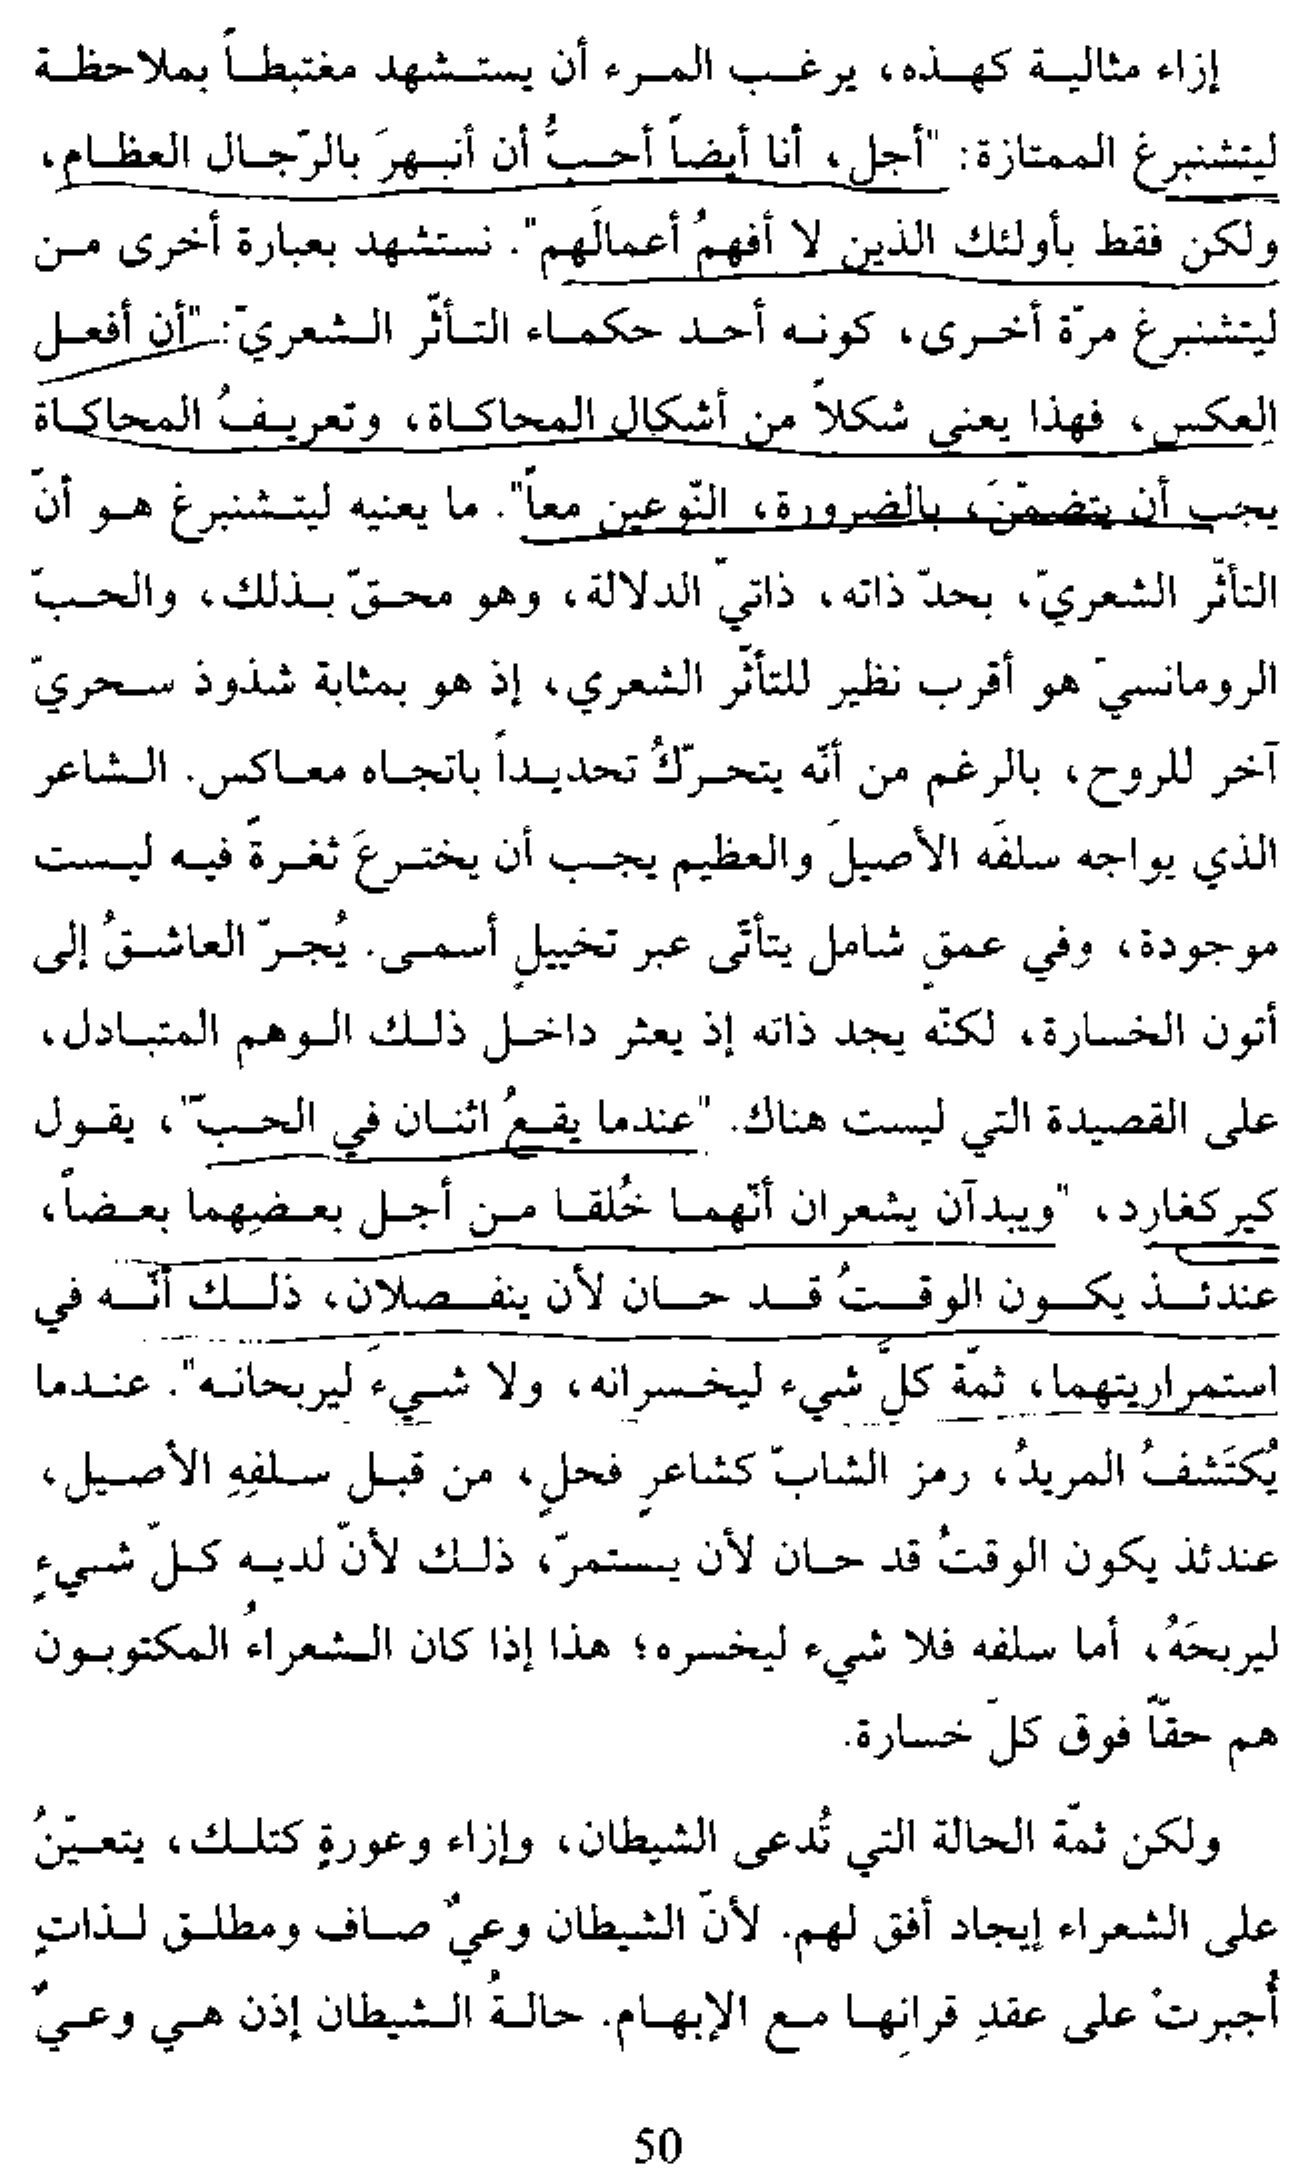 إزاء مثالية كهذه، يرغب المرء أن يستشهد مغتبطاً بملاحظة
ليتشنبرغ الممتازة: "أجل، أنا أيضاً أحبُّ أن أنبهرَ بالرّجال العظام،
ولكن فقط بأولئك الذين لا أفهمُ أعمالَهم". نستشهد بعبارة أخرى من
ليتشنبرغ مرّة أخرى، كونه أحد حكماء التأثّر الشعريّ: "أن أفعل
العكس، فهذا يعني شكلاً من أشكال المحاكاة، وتعريفُ المحاكاة
يجب أن يتضمّنَ، بالضرورة، النّوعين معاً". ما يعنيه ليتشنبرغ هو أنّ
التأثّر الشعريّ، بحدّ ذاته، ذاتيّ الدلالة، وهو محقّ بذلك، والحبّ
الرومانسيّ هو أقرب نظير للتأثّر الشعري، إذ هو بمثابة شذوذ سحريّ
آخر للروح، بالرغم من أنّه يتحرّكُ تحديداً باتجاه معاكس. الشاعر
الذي يواجه سلفَه الأصيلَ والعظيم يجب أن يخترعَ ثغرةً فيه ليست
موجودة، وفي عمقٍ شامل يتأتّى عبر تخييلٍ أسمى. يُجرّ العاشقُ إلى
أتون الخسارة، لكنّه يجد ذاته إذ يعثر داخل ذلك الوهم المتبادل،
على القصيدة التي ليست هناك. "عندما يقعُ اثنان في الحبّ"، يقول
كيركغارد، "ويبدآن يشعران أنّهما خُلقا من أجل بعضِهما بعضاً،
عندئذ يكون الوقتُ قد حان لأن ينفصلان، ذلك أنّه في
استمراريتهما، ثمّة كلَّ شيء ليخسرانه، ولا شيءَ ليربحانه". عندما
يُكتَشفُ المريدُ، رمز الشابّ كشاعرٍ فحلٍ، من قبل سلفِهِ الأصيل،
عندئذ يكون الوقتُ قد حان لأن يستمرّ، ذلك لأنّ لديه كلّ شيءٍ
ليربحَهُ، أما سلفه فلا شيء ليخسره؛ هذا إذا كان الشعراءُ المكتوبون
هم حقّاً فوق كلّ خسارة.
ولكن ثمّة الحالة التي تُدعى الشيطان، وإزاء وعورةٍ كتلك، يتعيّنُ
على الشعراء إيجاد أفق لهم. لأنّ الشيطان وعيٌ صاف ومطلق لذاتٍ
أُجبرتْ على عقدِ قرانِها مع الإبهام. حالةُ الشيطان إذن هي وعيٌ
50